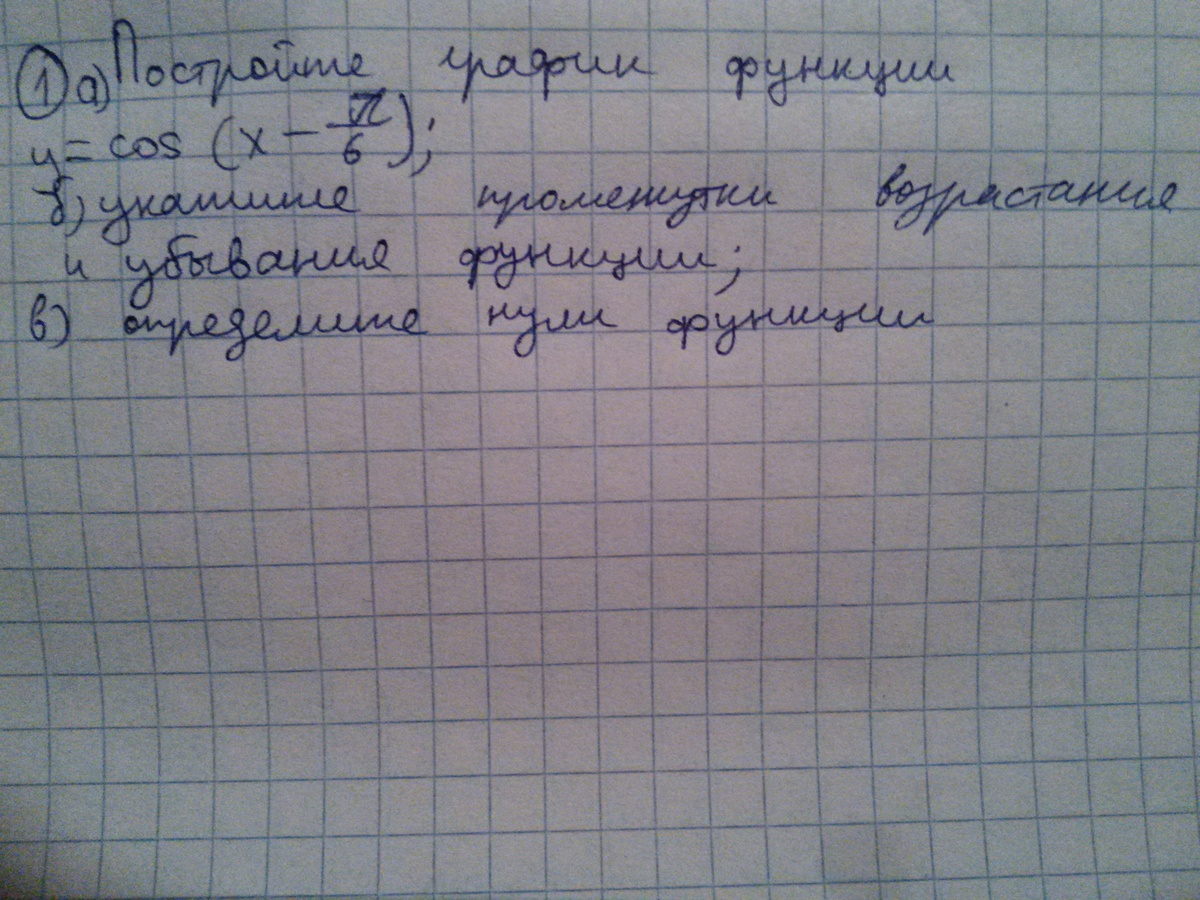 ① а) Постройте график функции
y = cos (x - π/6);
б) укажите промежутки возрастания
и убывания функции;
в) определите нули функции